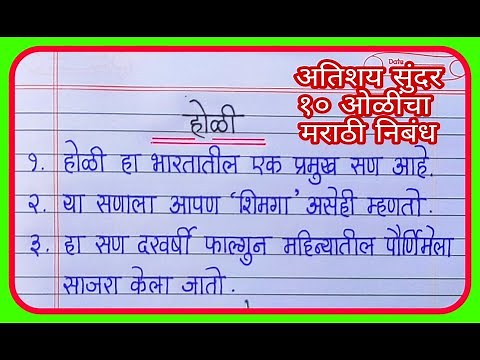 Date
अतिशय सुंदर
१० ओळींचा
मराठी निबंध
होळी
१. होळी हा भारतातील एक प्रमुख सण आहे.
२. या सणाला आपण 'शिमगा' असेही म्हणतो.
३. हा सण दरवर्षी फाल्गुन महिन्यातील पौर्णिमेला
साजरा केला जातो.